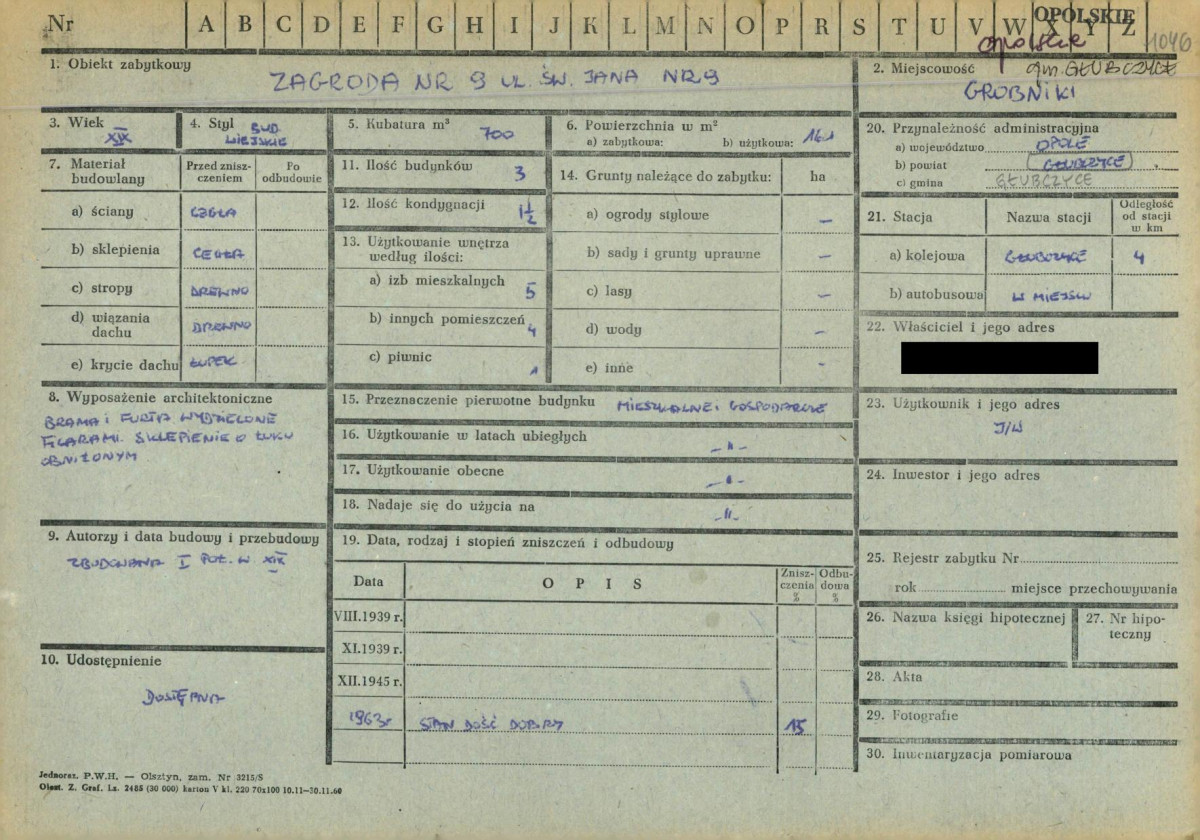 Nr A B C D E F G H I J K L M N O P R S T U V W X Y Z
OPOLSKIE
opolskie
1046
1. Obiekt zabytkowy
ZAGRODA NR 9 UL. ŚW. JANA NR 9
2. Miejscowość gm. GŁUBCZYCE
GROBNIKI
3. Wiek
XIX
4. Styl BUD.
WIEJSKIE
5. Kubatura m³
700
6. Powierzchnia w m²
a) zabytkowa: b) użytkowa: 161
7. Materiał budowlany
Przed zniszczeniem
Po odbudowie
a) ściany CEGŁA
b) sklepienia CEGŁA
c) stropy DREWNO
d) wiązania dachu DREWNO
e) krycie dachu ŁUPEK
8. Wyposażenie architektoniczne
BRAMA I FURTA WYDZIELONE
FILARAMI. SKLEPIENIE O ŁUKU
OBNIŻONYM
9. Autorzy i data budowy i przebudowy
ZBUDOWANA I POŁ. W. XIX
10. Udostępnienie
DOSTĘPNA
11. Ilość budynków 3
12. Ilość kondygnacji 1½
13. Użytkowanie wnętrza
według ilości:
a) izb mieszkalnych 5
b) innych pomieszczeń 4
c) piwnic 1
14. Grunty należące do zabytku: ha
a) ogrody stylowe –
b) sady i grunty uprawne –
c) lasy –
d) wody –
e) inne –
15. Przeznaczenie pierwotne budynku MIESZKALNE I GOSPODARCZE
16. Użytkowanie w latach ubiegłych –"–
17. Użytkowanie obecne –"–
18. Nadaje się do użycia na –"–
19. Data, rodzaj i stopień zniszczeń i odbudowy
Data OPIS Zniszczenia % Odbudowa %
VIII.1939 r.
XI.1939 r.
XII.1945 r.
1963r STAN DOŚĆ DOBRY 15
20. Przynależność administracyjna
a) województwo OPOLE
b) powiat GŁUBCZYCE
c) gmina GŁUBCZYCE
21. Stacja Nazwa stacji Odległość od stacji w km
a) kolejowa GŁUBCZYCE 4
b) autobusowa W MIEJSCU
22. Właściciel i jego adres
23. Użytkownik i jego adres
J/W
24. Inwestor i jego adres
25. Rejestr zabytku Nr
rok miejsce przechowywania
26. Nazwa księgi hipotecznej
27. Nr hipoteczny
28. Akta
29. Fotografie
30. Inwentaryzacja pomiarowa
Jednoraz. P.W.H. — Olsztyn, zam. Nr 3215/S
Olszt. Z. Graf. Lz. 2485 (30 000) karton V kl. 220 70x100 10.11—30.11.60